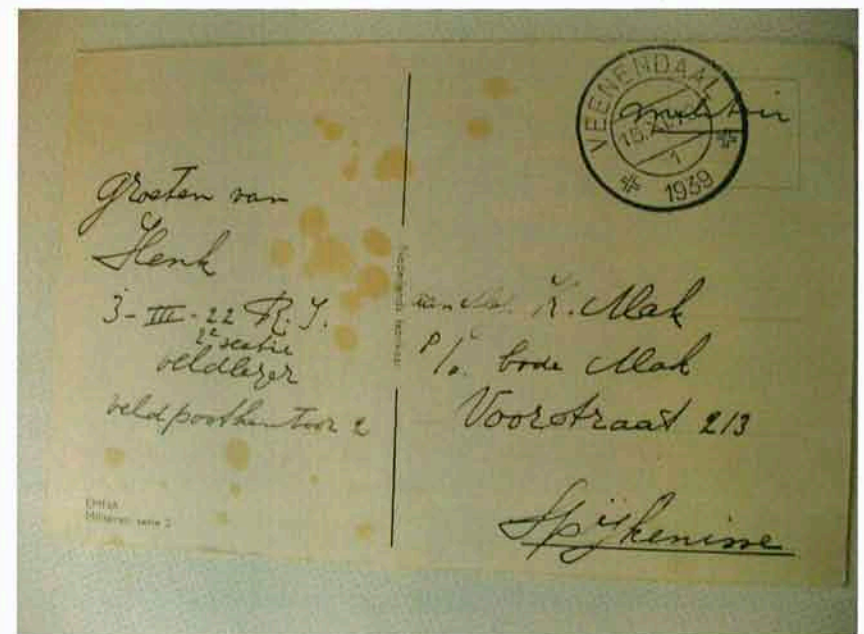 Groeten van
Henk
3-III-22 R.I.
2e sectie
veldleger
veldpostkantoor 2
Militairen serie 2
VEENENDAAL
1
1939
militair
K. Mak
p/a. bode Mak
Voorstraat 213
Spijkenisse